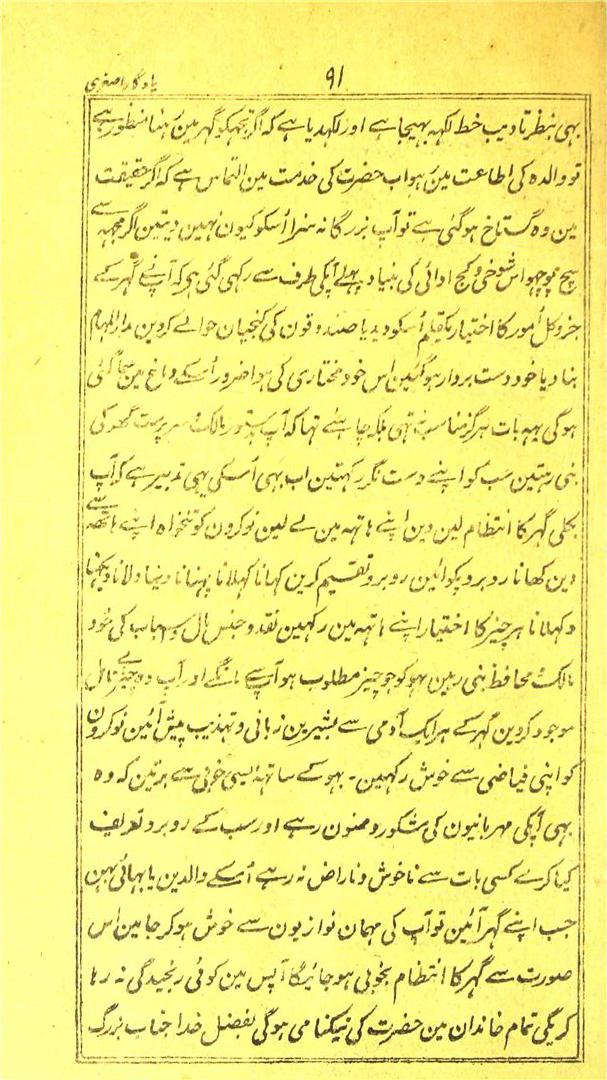 ۹۱
یادگار اصغری
بہی بنظر تادیب خط لکہہ بہیجا ہے اور لکہدیا ہے کہ اگر تجہکو گہر مین رہنا منظور ہے
تو والدہ کی اطاعت مین رہو اب حضرت کی خدمت مین التماس ہے کہ اگر حقیقت
مین وہ گستاخ ہوگئی ہے تو آپ بزرگانہ سزا اُسکو کیون نہین دیتین اگر مجہہ سے
سچ پوچہو اس شوخی و کج ادائی کی بنیاد پہلے آپکی طرف سے رکہی گئی ہی کہ آپنے گہر کے
جزو کل اُمور کا اختیار یکقلم اُسکو دیدیا صندوقون کی کنجیان حوالے کردین مدارالمہام
بنادیا خود دست بردار ہوگئین اس خود مختاری کی ہوا ضرور اُسکے دماغ مین سما گئی
ہوگی یہہ بات ہرگز مناسب نتہی بلکہ چاہئے تہا کہ آپ بدستور مالک و سرپرست گہر کی
بنی رہتین سب کو اپنے دست نگر رکہتین اب بہی اُسکی یہی تدبیر ہے کہ آپ
بکلی گہر کا انتظام لین دین اپنے ہاتہہ مین لے لین نوکرون کو تنخواہ اپنے ہاتہہ سے
دین کہانا روبرو پکوائین روبرو تقسیم کرین کہانا کہلانا پہنانا دینا دلانا دیکہنا
دکہلانا ہر چیز کا اختیار اپنے ہاتہہ مین رکہین نقد و جنس مال و اسباب کی خود
مالک و محافظ بنی رہین بہو کو جو چیز مطلوب ہو آپ سے مانگے اور آپ وہ چیز
موجود کردین گہر کے ہر ایک آدمی سے بشیرین زبانی و تہذیب پیش آئین نوکرون
کو اپنی فیاضی سے خوش رکہین۔ بہو کے ساتہہ ایسی خوبی سے برتین کہ وہ
بہی آپکی مہربانیون کی مشکور و ممنون رہے اور سب کے روبرو تعریف
کیا کرے کسی بات سے ناخوش و ناراض نہ رہے اُسکے والدین یا بہائی بہن
جب اپنے گہر آئین تو آپ کی مہمان نوازیون سے خوش ہوکر جاین اس
صورت سے گہر کا انتظام بخوبی ہوجائیگا آپس مین کوئی رنجیدگی نہ رہا
کریگی تمام خاندان مین حضرت کی نیکنامی ہوگی بفضل خدا جناب بزرگ